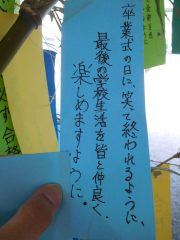 卒業式の日に、笑って終われるように、
最後の学校生活を皆と仲良く、
楽しめますように。
合格